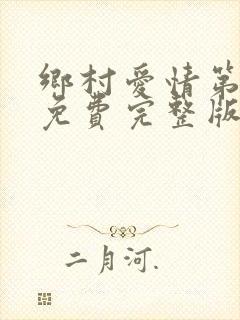 鄉村愛情第
免費完整版
二月河.